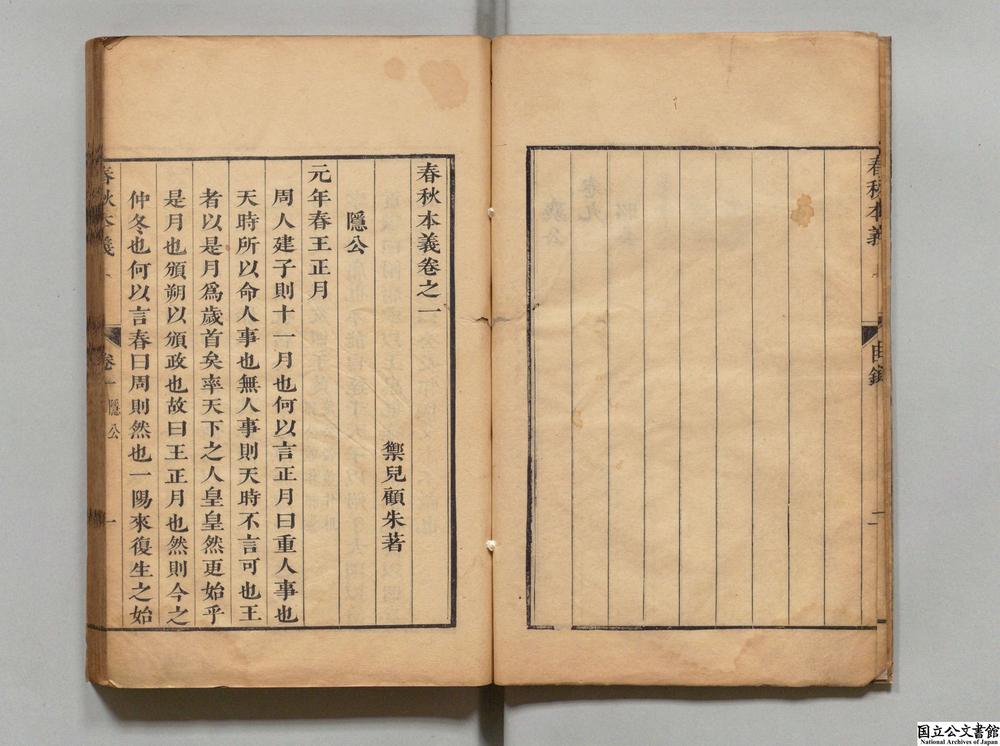 春秋本義
目錄
二
春秋本義卷之一
禦兒顧朱著
隱公
元年春王正月
周人建子則十一月也何以言正月曰重人事也
天時所以命人事也無人事則天時不言可也王
者以是月爲歲首矣率天下之人皇皇然更始乎
是月也頒朔以頒政也故曰王正月也然則今之
仲冬也何以言春曰周則然也一陽來復生之始
春秋本義
卷一
隱公
一
国立公文書館
National Archives of Japan